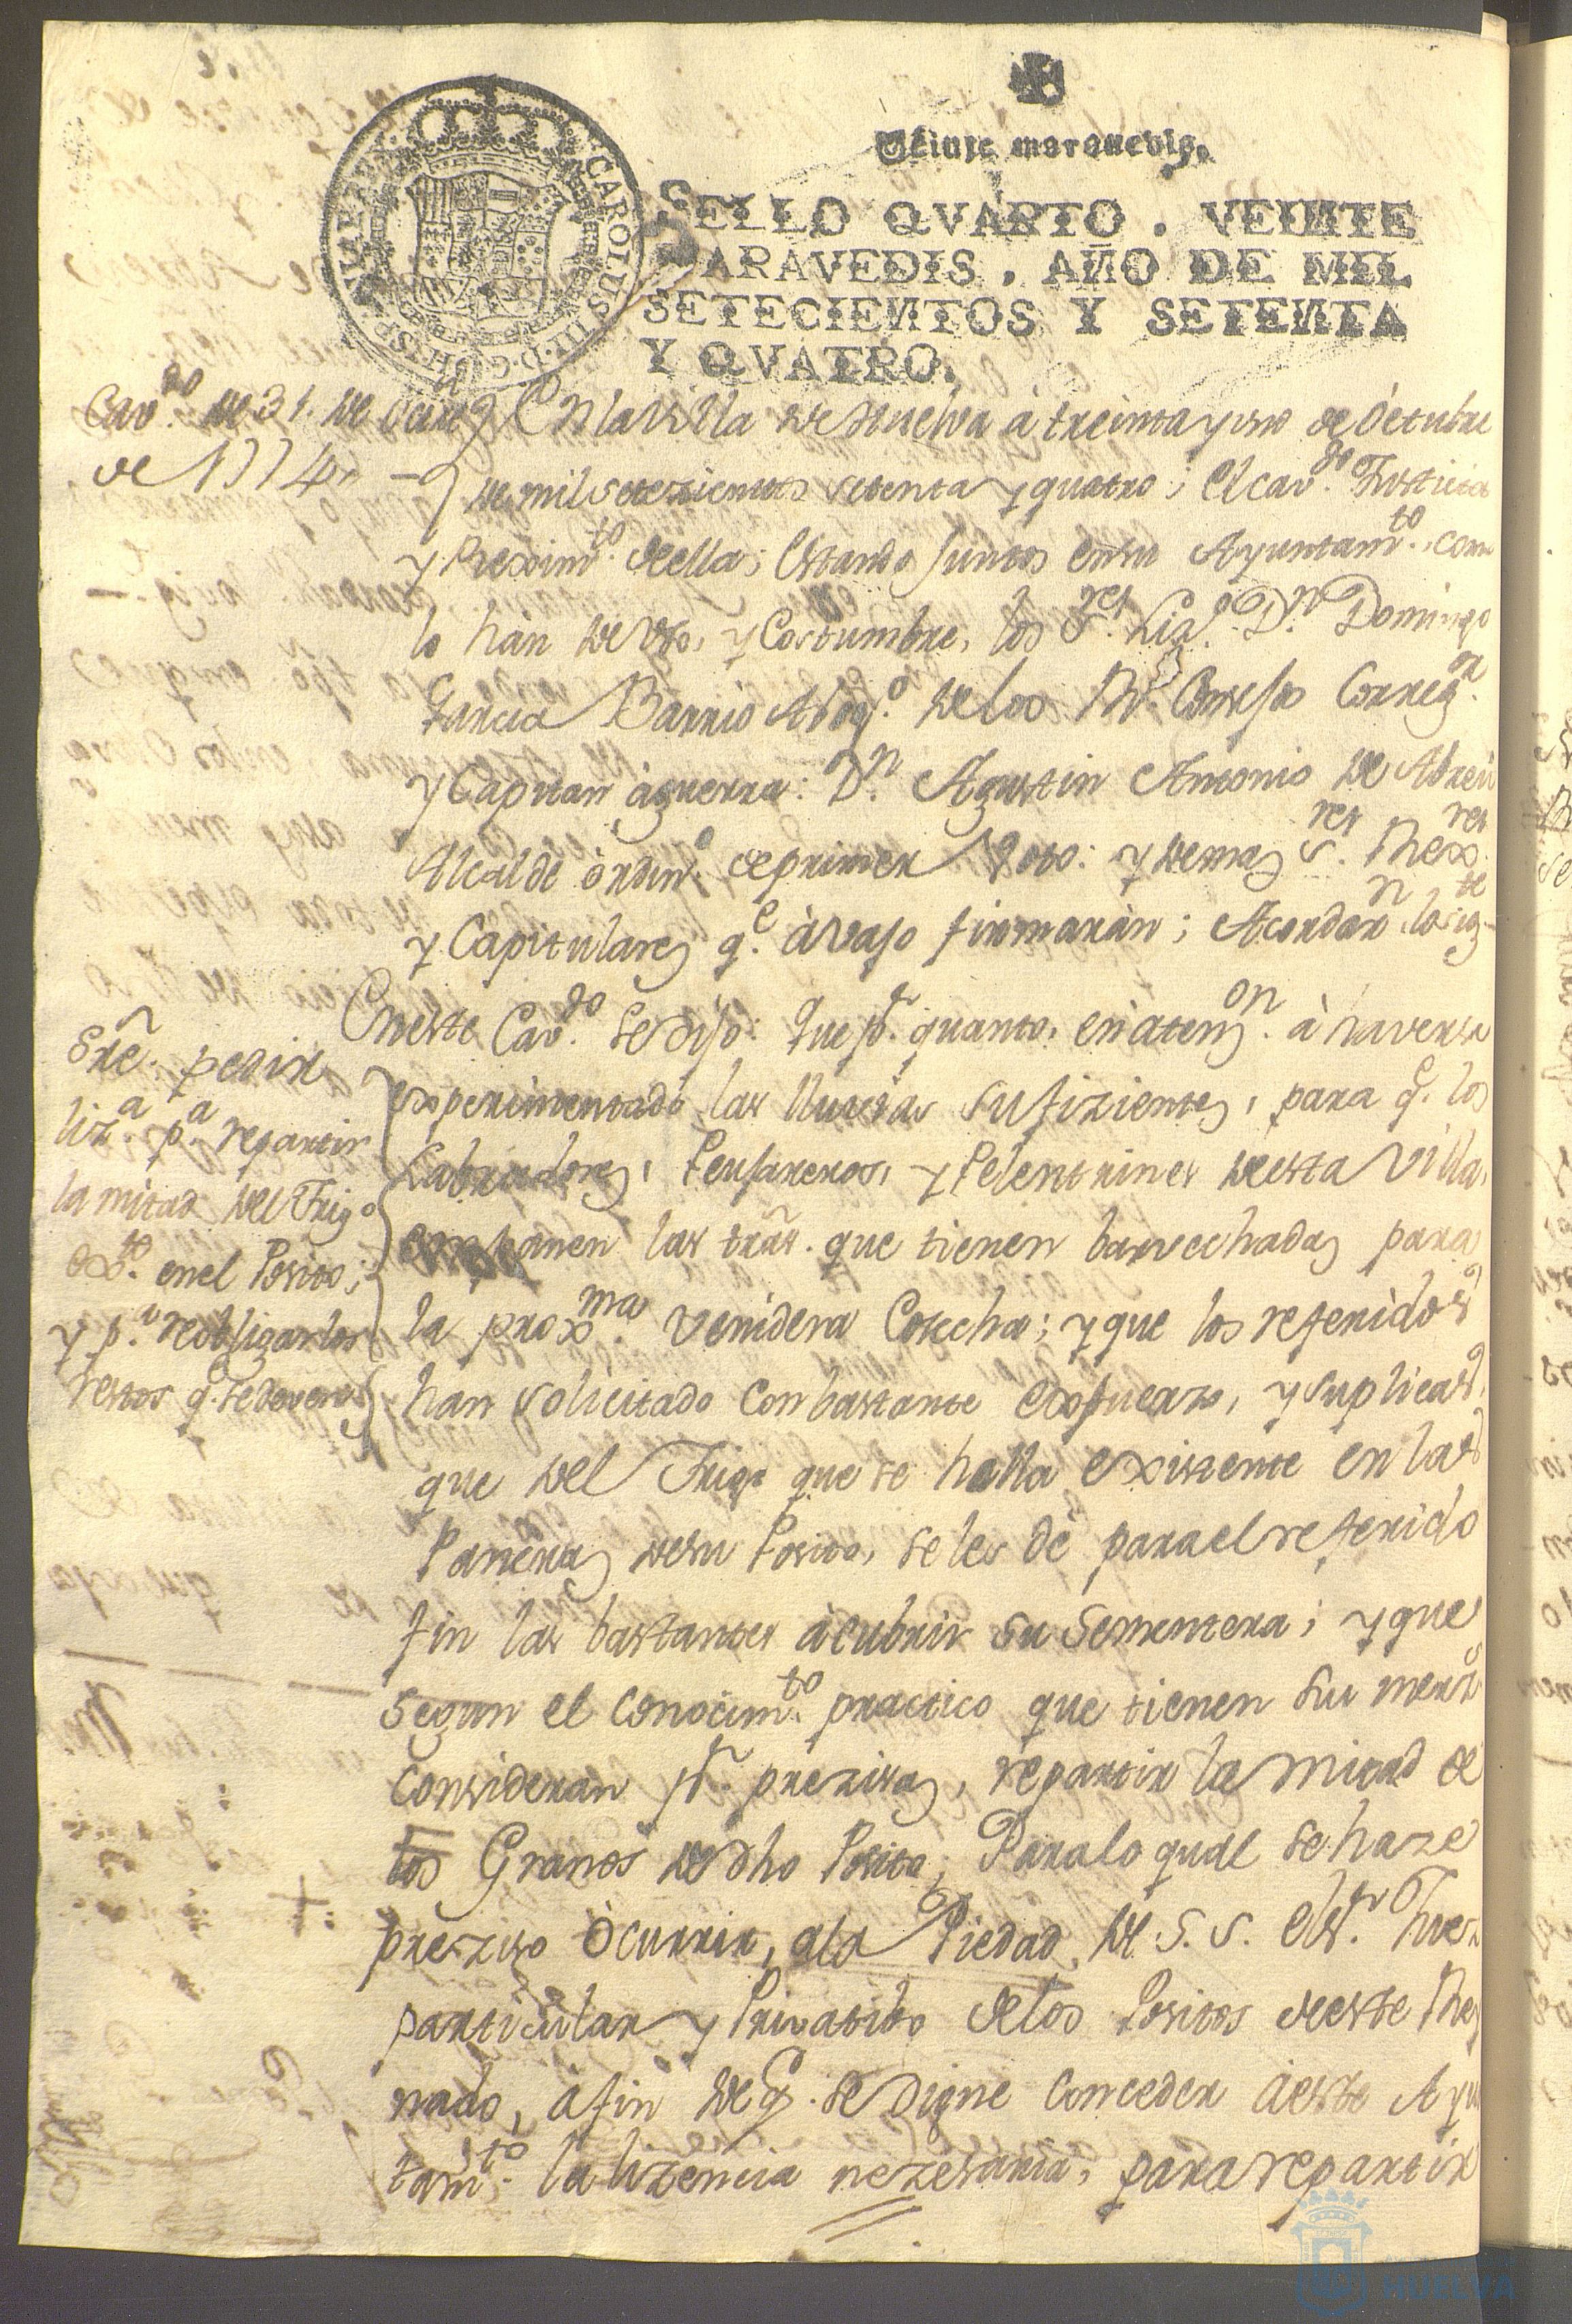 Veinte maravedis.
SELLO QVARTO. VEINTE
MARAVEDIS, AÑO DE MIL
SETECIENTOS Y SETENTA
Y QVATRO.
CAROLUS III D G HISP
Cavdo. de 31. de Octre
de 1774.
En la Villa de Huelva à treinta y uno de Octubre
de mil setezientos setenta y quatro; el Cavdo. Justicia
y Reximto. de ella; estando Juntos en su Ayuntamto. como
lo hàn de Vso, y Costumbre, los Sres. Lizdo. Dn. Domingo
Garcia Barrio Abogdo. de los Rs. Consejos Corregor.
y Capitan à guerra: Dn. Agustin Antonio de Abreu
Alcalde ordino. de primer Voto: y demas Sres. Rexres.
y Capitulares qe. àvajo firmaràn; Acordaron lo sigte
Sre. pedir
liza. pa. repartir
la mitad del Trigo
exte. en el Posito;
y pr. reobligar los
restos q. se deven
En este Cavdo. se dijo: Que pr. quanto, en atenon. à haverse
experimentado las lluvias sufizientes, para qe. los
Labradores, Peujareros, y Pelentrines de esta Villa,
empanen las trãs. que tienen barvechadas para
la proxma. venidera Cosecha; y que los referidos
han solicitado con bastante exfuerzo, y suplicas,
que del Trigo que se halla existente en las
Paneras de su Posito, se les dè para el referido
fin las bastantes à cubrir su Sementera; y que
segun el conocimto. practico que tienen sus merzs.
consideran pr. prezisa, repartir la mitad de
los Granos de dho Posito; Para lo qual se haze
preziso òcurrir, a la Piedad, de S. S. el Sr. Juez
particular y Privatibo de los Positos de este Rey
nado, à fin de q. se digne conceder à este Ayun
tamto. la lizencia nezesaria, para repartir
HUELVA